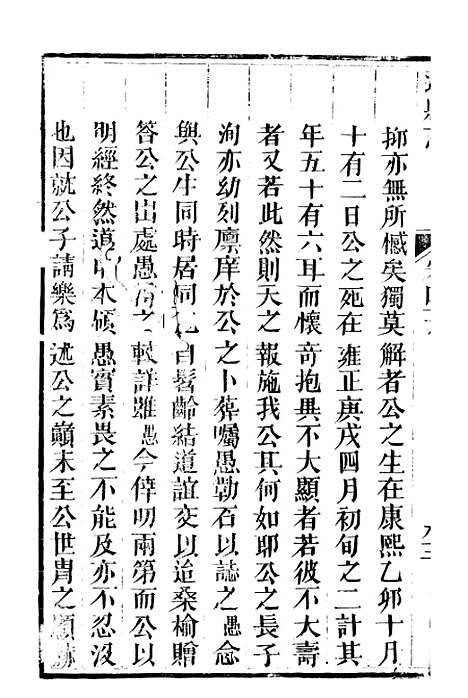 抑亦無所憾矣獨莫解者公之生在康熙乙卯十月
十有二日公之死在雍正庚戌四月初旬之二計其
年五十有六耳而懷奇抱異不大顯者若彼不大壽
者又若此然則天之報施我公其何如耶公之長子
洵亦幼列廩庠於公之卜葬囑愚勒石以誌之愚念
與公生同時居同 自髫齡結道誼交以迨桑榆贈
答公之出處愚 之較詳雖愚今倖叨兩第而公以
明經終然道 本碩愚實素畏之不能及亦不忍沒
也因就公子請樂爲述公之顛末至公世胄之顯